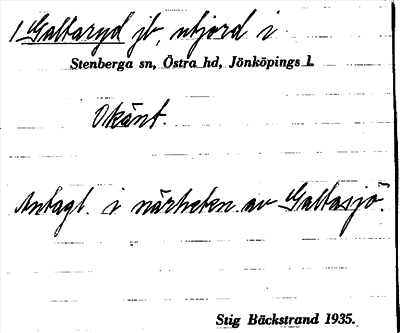 1 Galtaryd jb, utjord i
Stenberga sn, Östra hd, Jönköpings l.
Okänt.
Antagl. i närheten av Galtasjö.
Stig Bäckstrand 1935.